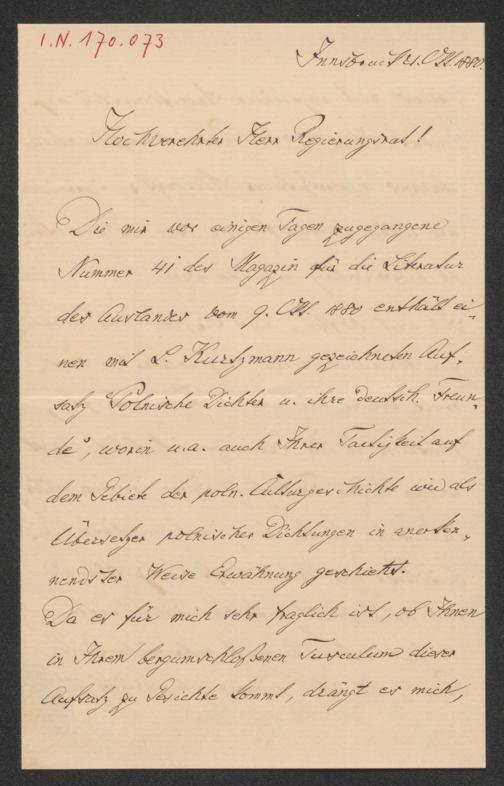 I.N. 170.073
Innsbruck 21. Okt. 1880.
Hochverehrter Herr Regierungsrat!
Die mir vor einigen Tagen zugegangene
Nummer 41 des Magazin für die Literatur
des Auslandes vom 9. Okt. 1880 enthält ei-
nen mit L. Kurtzmann gezeichneten Auf-
satz „Polnische Dichter u. ihre deutsch. Freun-
de“, worin u.a. auch Ihrer Taetigkeit auf
dem Gebiete der poln. Culturgeschichte wie als
Übersetzer polnischer Dichtungen in anerken-
nendster Weise Erwähnung geschieht.
Da es für mich sehr fraglich ist, ob Ihnen
in Ihrem bergumschloßenen Tusculum dieser
Aufsatz zu Gesichte kommt, drängt es mich,